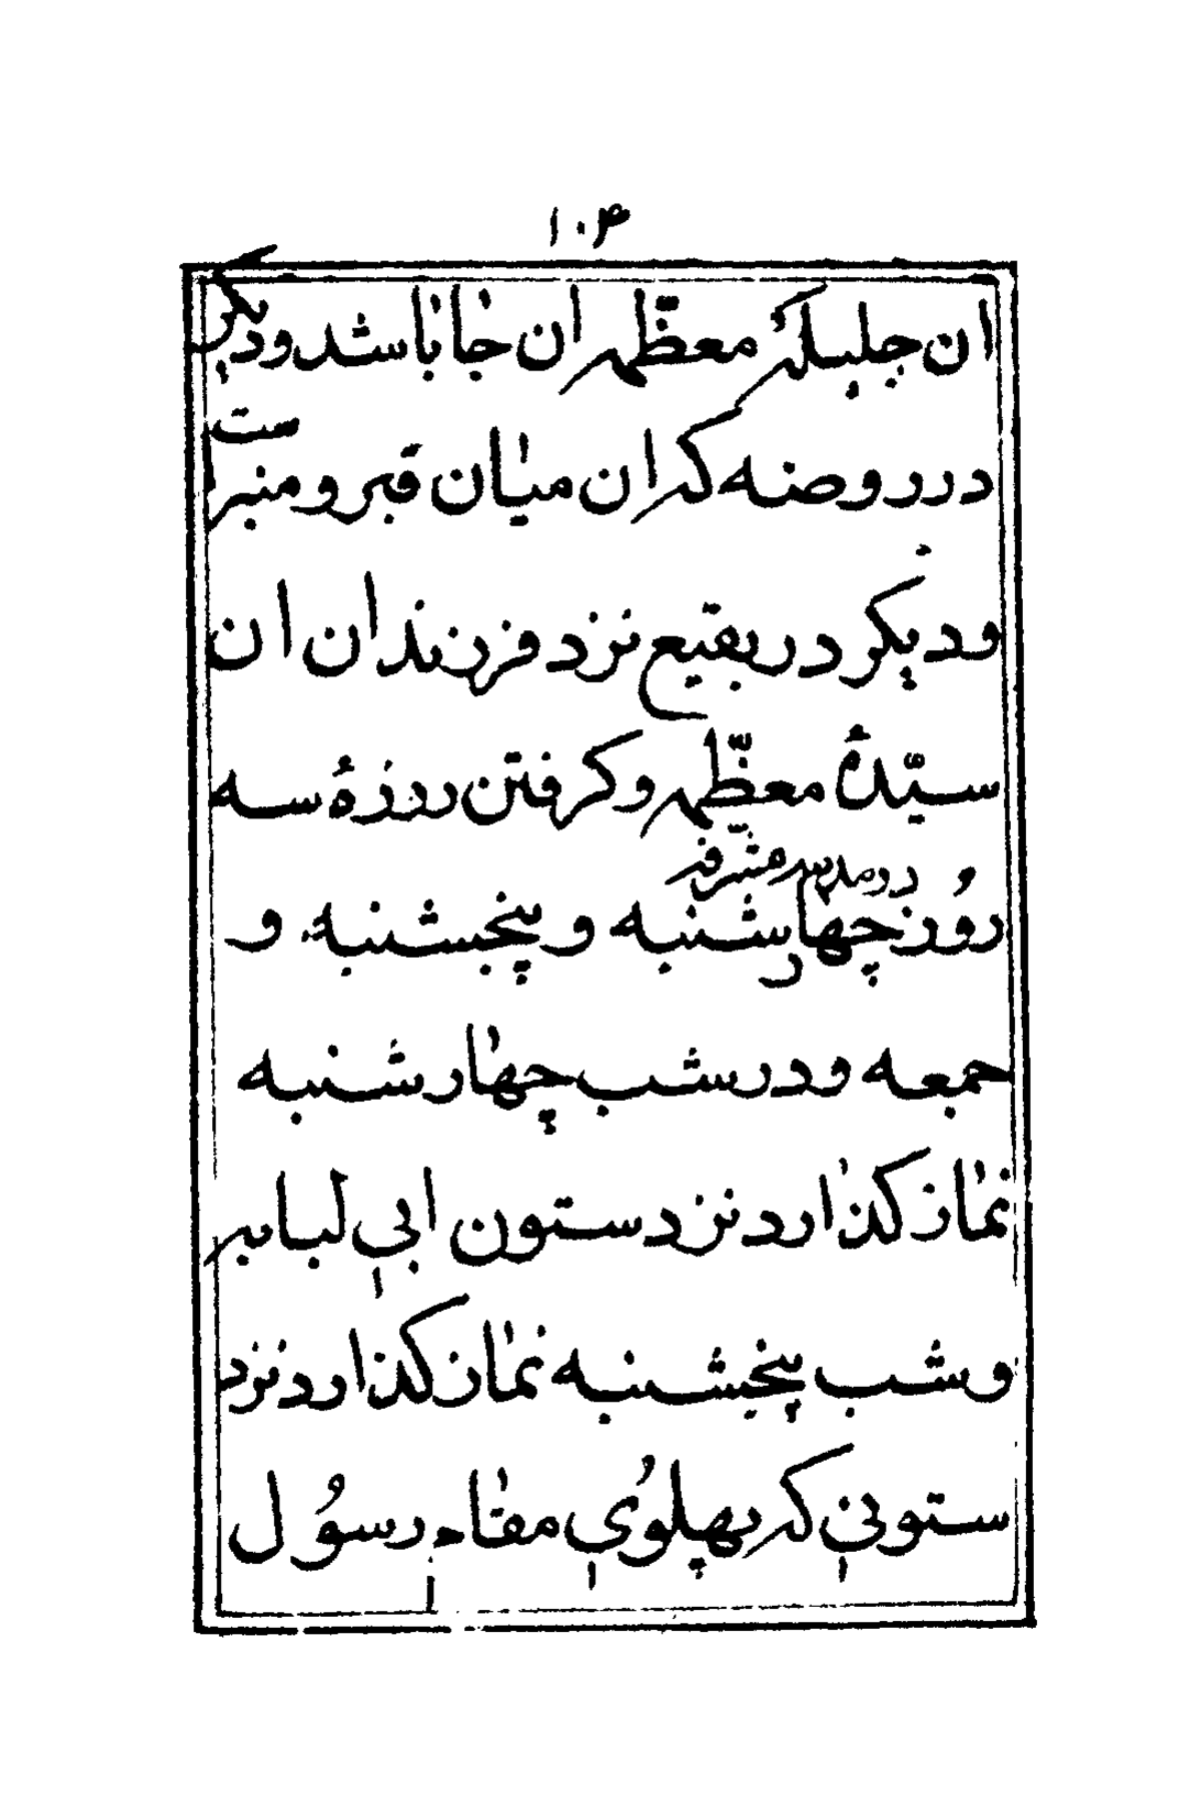 ۱۰۴
ان جلیلهٔ معظمه ان جا باشد و دیکر
در روضه که ان میان قبر و منبر است
و دیکر در بقیع نزد فرزندان ان
سیّدهٔ معظّمه و کرفتن روزهٔ سه
در مدینه مشرّفه
روُز چهارشنبه و پنجشنبه و
جمعه و در شب چهارشنبه
نماز کذارد نزد ستون ابی لبابه
و شب پنجشنبه نماز کذارد نزد
ستونی که پهلوُی مقام رسوُل